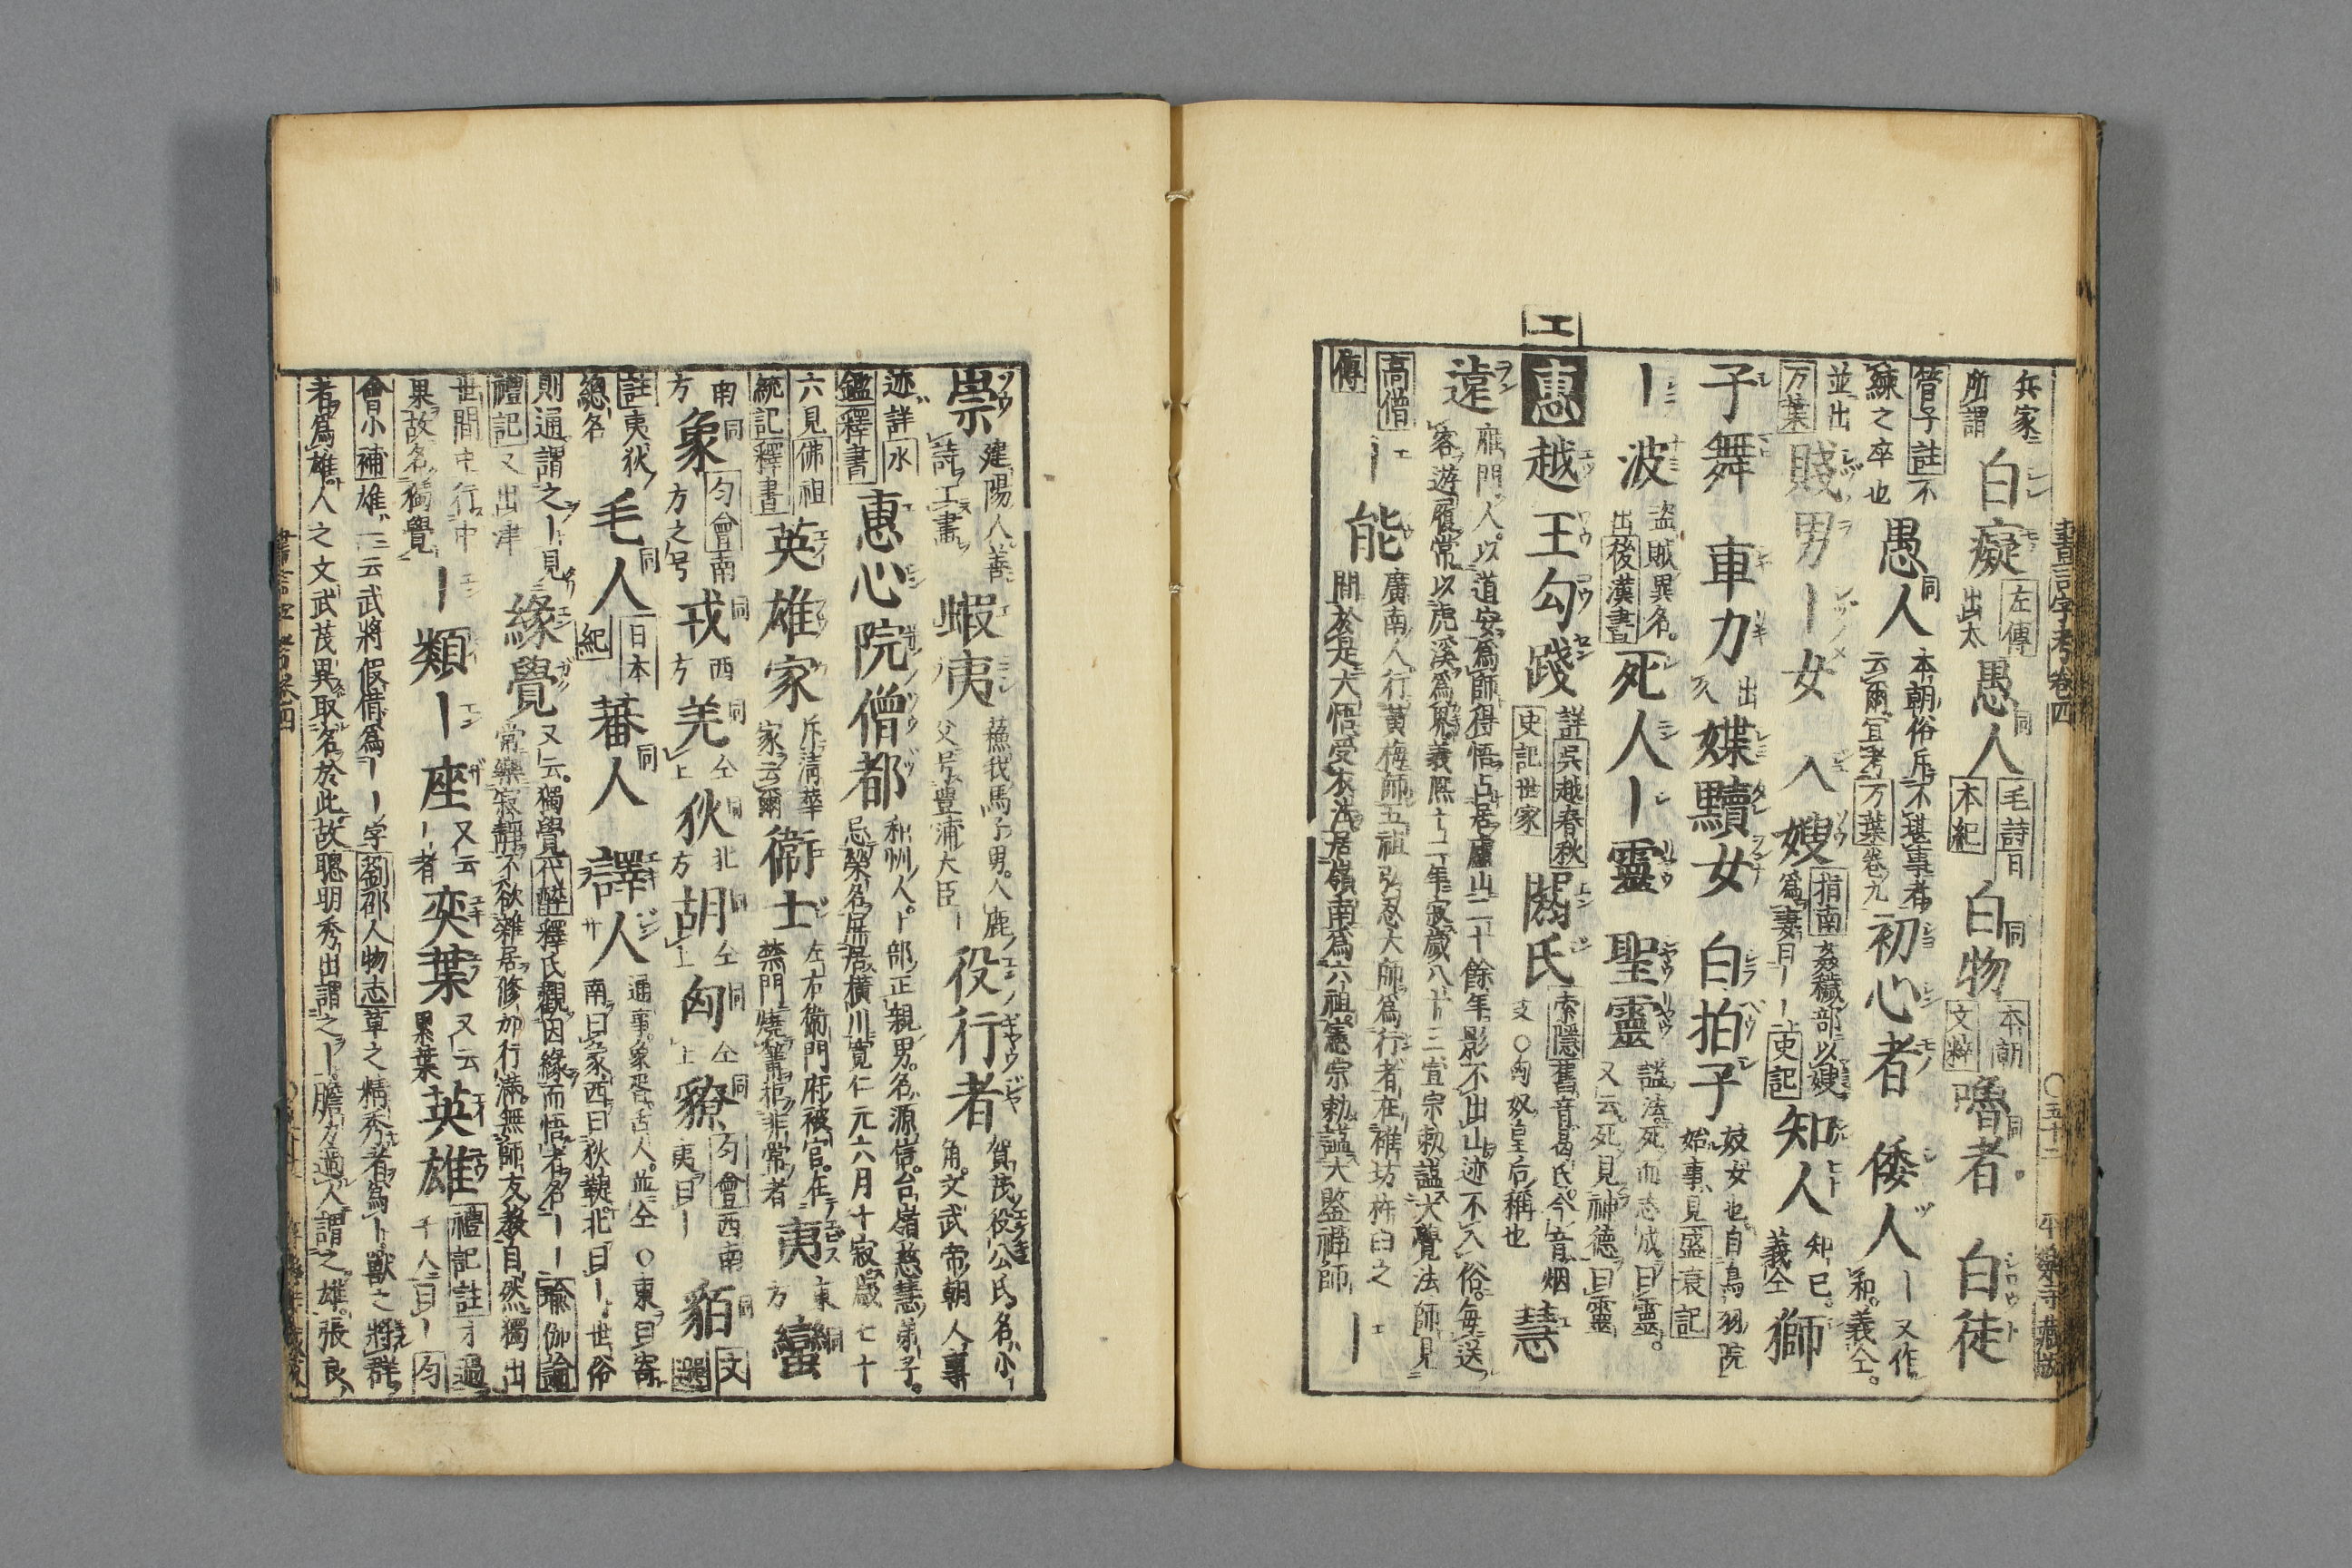 書言字考卷四 〇五十二
兵家所謂 白癡 左傳出太 愚人 毛詩日本紀 白物 本朝文粹 嚕者 白徒
管子註不練之卒也 愚人 本朝俗斥不堪事者云爾宜考万葉卷九 初心者 倭人 ー又作和義仝
並出万葉 賤男 ー女 入嫂 指南姦穢部以嫂爲妻曰ーー上史記 知人 知已義仝 獅
子舞 車力 出 媟黷女 白拍子 妓女也自鳥羽院始事見盛衰記
ー波 盗賊異名出後漢書 死人 ー靈 聖靈 謚法死而志成曰靈又云死見神德曰靈
エ
惠 越王勾踐 詳吳越春秋史記世家 閼氏 索隱舊音曷氏今音烟支〇匈奴皇后稱也 慧
遠 雁門人以道安爲師得悟占居廬山三十餘年影不出山迹不入俗每送客遊履常以虎溪爲界義熙十二年寂歲八十三宣宗勅謚大覺法師見
高僧傳 ー能 廣南人行黃梅師五祖弘忍大師爲行者在碓坊杵臼之間於是大悟受衣法居嶺南爲六祖憲宗勅謚大鑒禪師 ー
崇 建陽人善詩工書 蝦夷 蘇我馬子男入鹿父号豊浦大臣 役行者 賀茂役公氏名小角文武帝朝人事
迹詳水鑑釋書 惠心院僧都 和州人卜部正親男名源信台嶺慈慧弟子忌榮名屏居横川寛仁元六月十寂歲七十
六見佛祖統記釋書 英雄家 斥淸華家云爾 衞士 左右衞門府被官在禁門燒篝禦非常者 夷 東方 蠻 同
南方 象 同 匀會南方之号 戎 同 西方 羌 同 仝上 狄 同 北方 胡 同 仝上 匈 同 仝上 獠 同 匀會西南夷曰ー 貊 同 文選
註夷狄總名 毛人 同 日本紀 蕃人 同 譯人 通事象胥舌人並仝〇東曰寄南曰象西曰狄鞮北曰ー世俗
則通謂之ー見禮記又出津 緣覺 又云獨覺代醉釋氏觀因緣而悟者名ーー瑜伽論常樂寂靜不欲雜居修加行滿無師友敎自然獨出
世間中行中果故名獨覺 ー類 ー座 又云ー者 奕葉 又云累葉 英雄 禮記註才過千人曰ー匀
會小補雄一云武將假借爲ーー字劉邵人物志草之精秀者爲ー獸之將群
者爲雄人之文武茂異取名於此故聰明秀出謂之ー膽力過人謂之雄張良